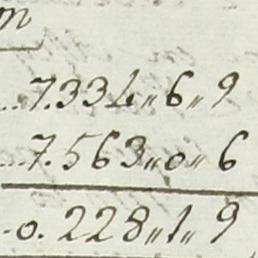 ..7.334"6"9
...7.563"0"6
..0.228"1"9